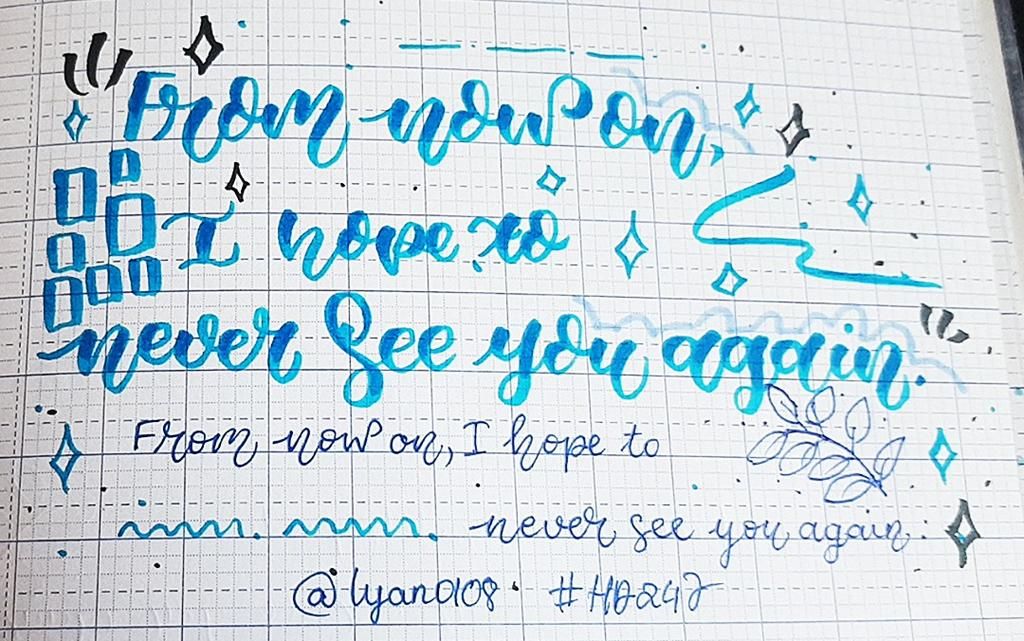 From now on,
I hope to
never see you again.
From now on, I hope to
never see you again.
@lyan0108.